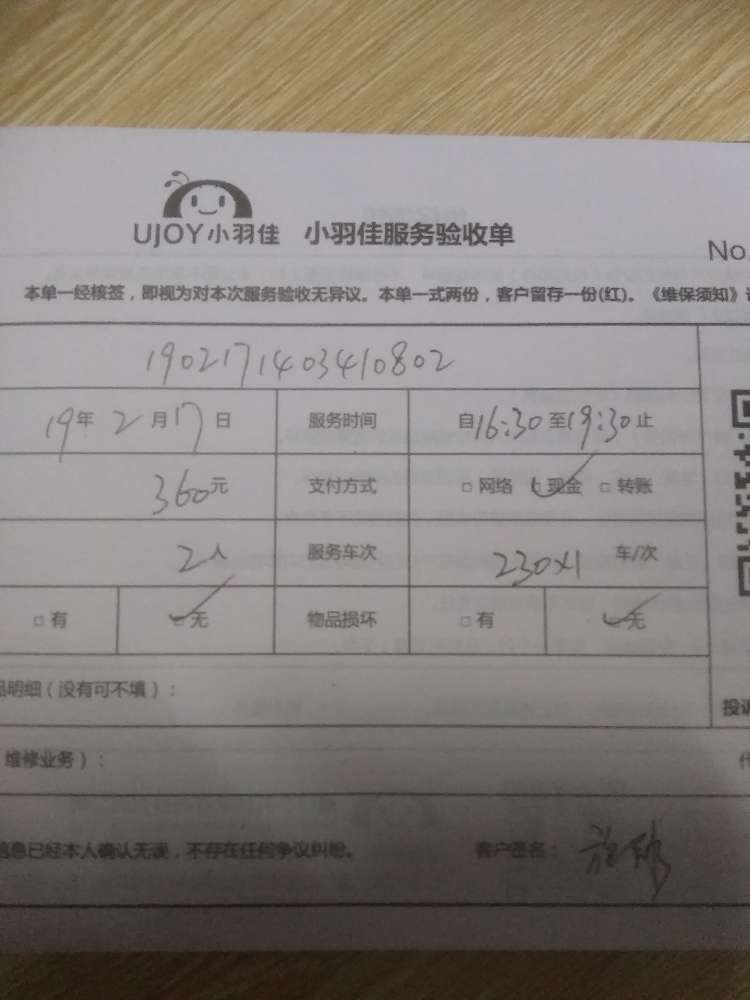 UJOY小羽佳 小羽佳服务验收单
No.
本单一经核签，即视为对本次服务验收无异议。本单一式两份，客户留存一份(红)。《维保须知》
1902171403410802
19年2月17日 服务时间 自16:30至19:30止
360元 支付方式 □网络 ☑现金 □转账
2人 服务车次 230×1 车/次
□有 ☑无 物品损坏 □有 ☑无
品明细（没有可不填）：
投诉
维修业务）：
信息已经本人确认无误，不存在任何争议纠纷。 客户签名：